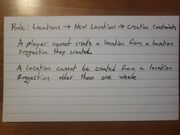 Rule: Locations → New Locations → Creation Constraints
A player cannot create a location from a location
suggestion they created.
A location cannot be created from a location
suggestion older than one week.